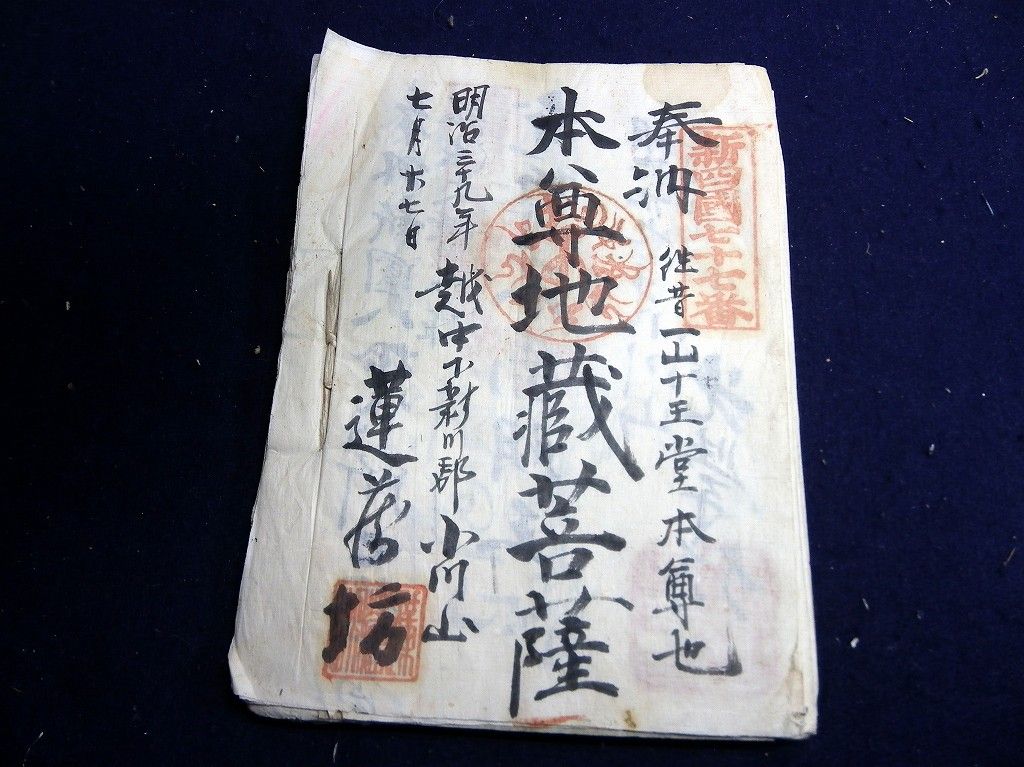 新四國七十七番
奉納
往昔一山十王堂本尊也
本尊地蔵菩薩
明治三十九年
七月十七日
越中下新川郡小川山
蓮蔵坊